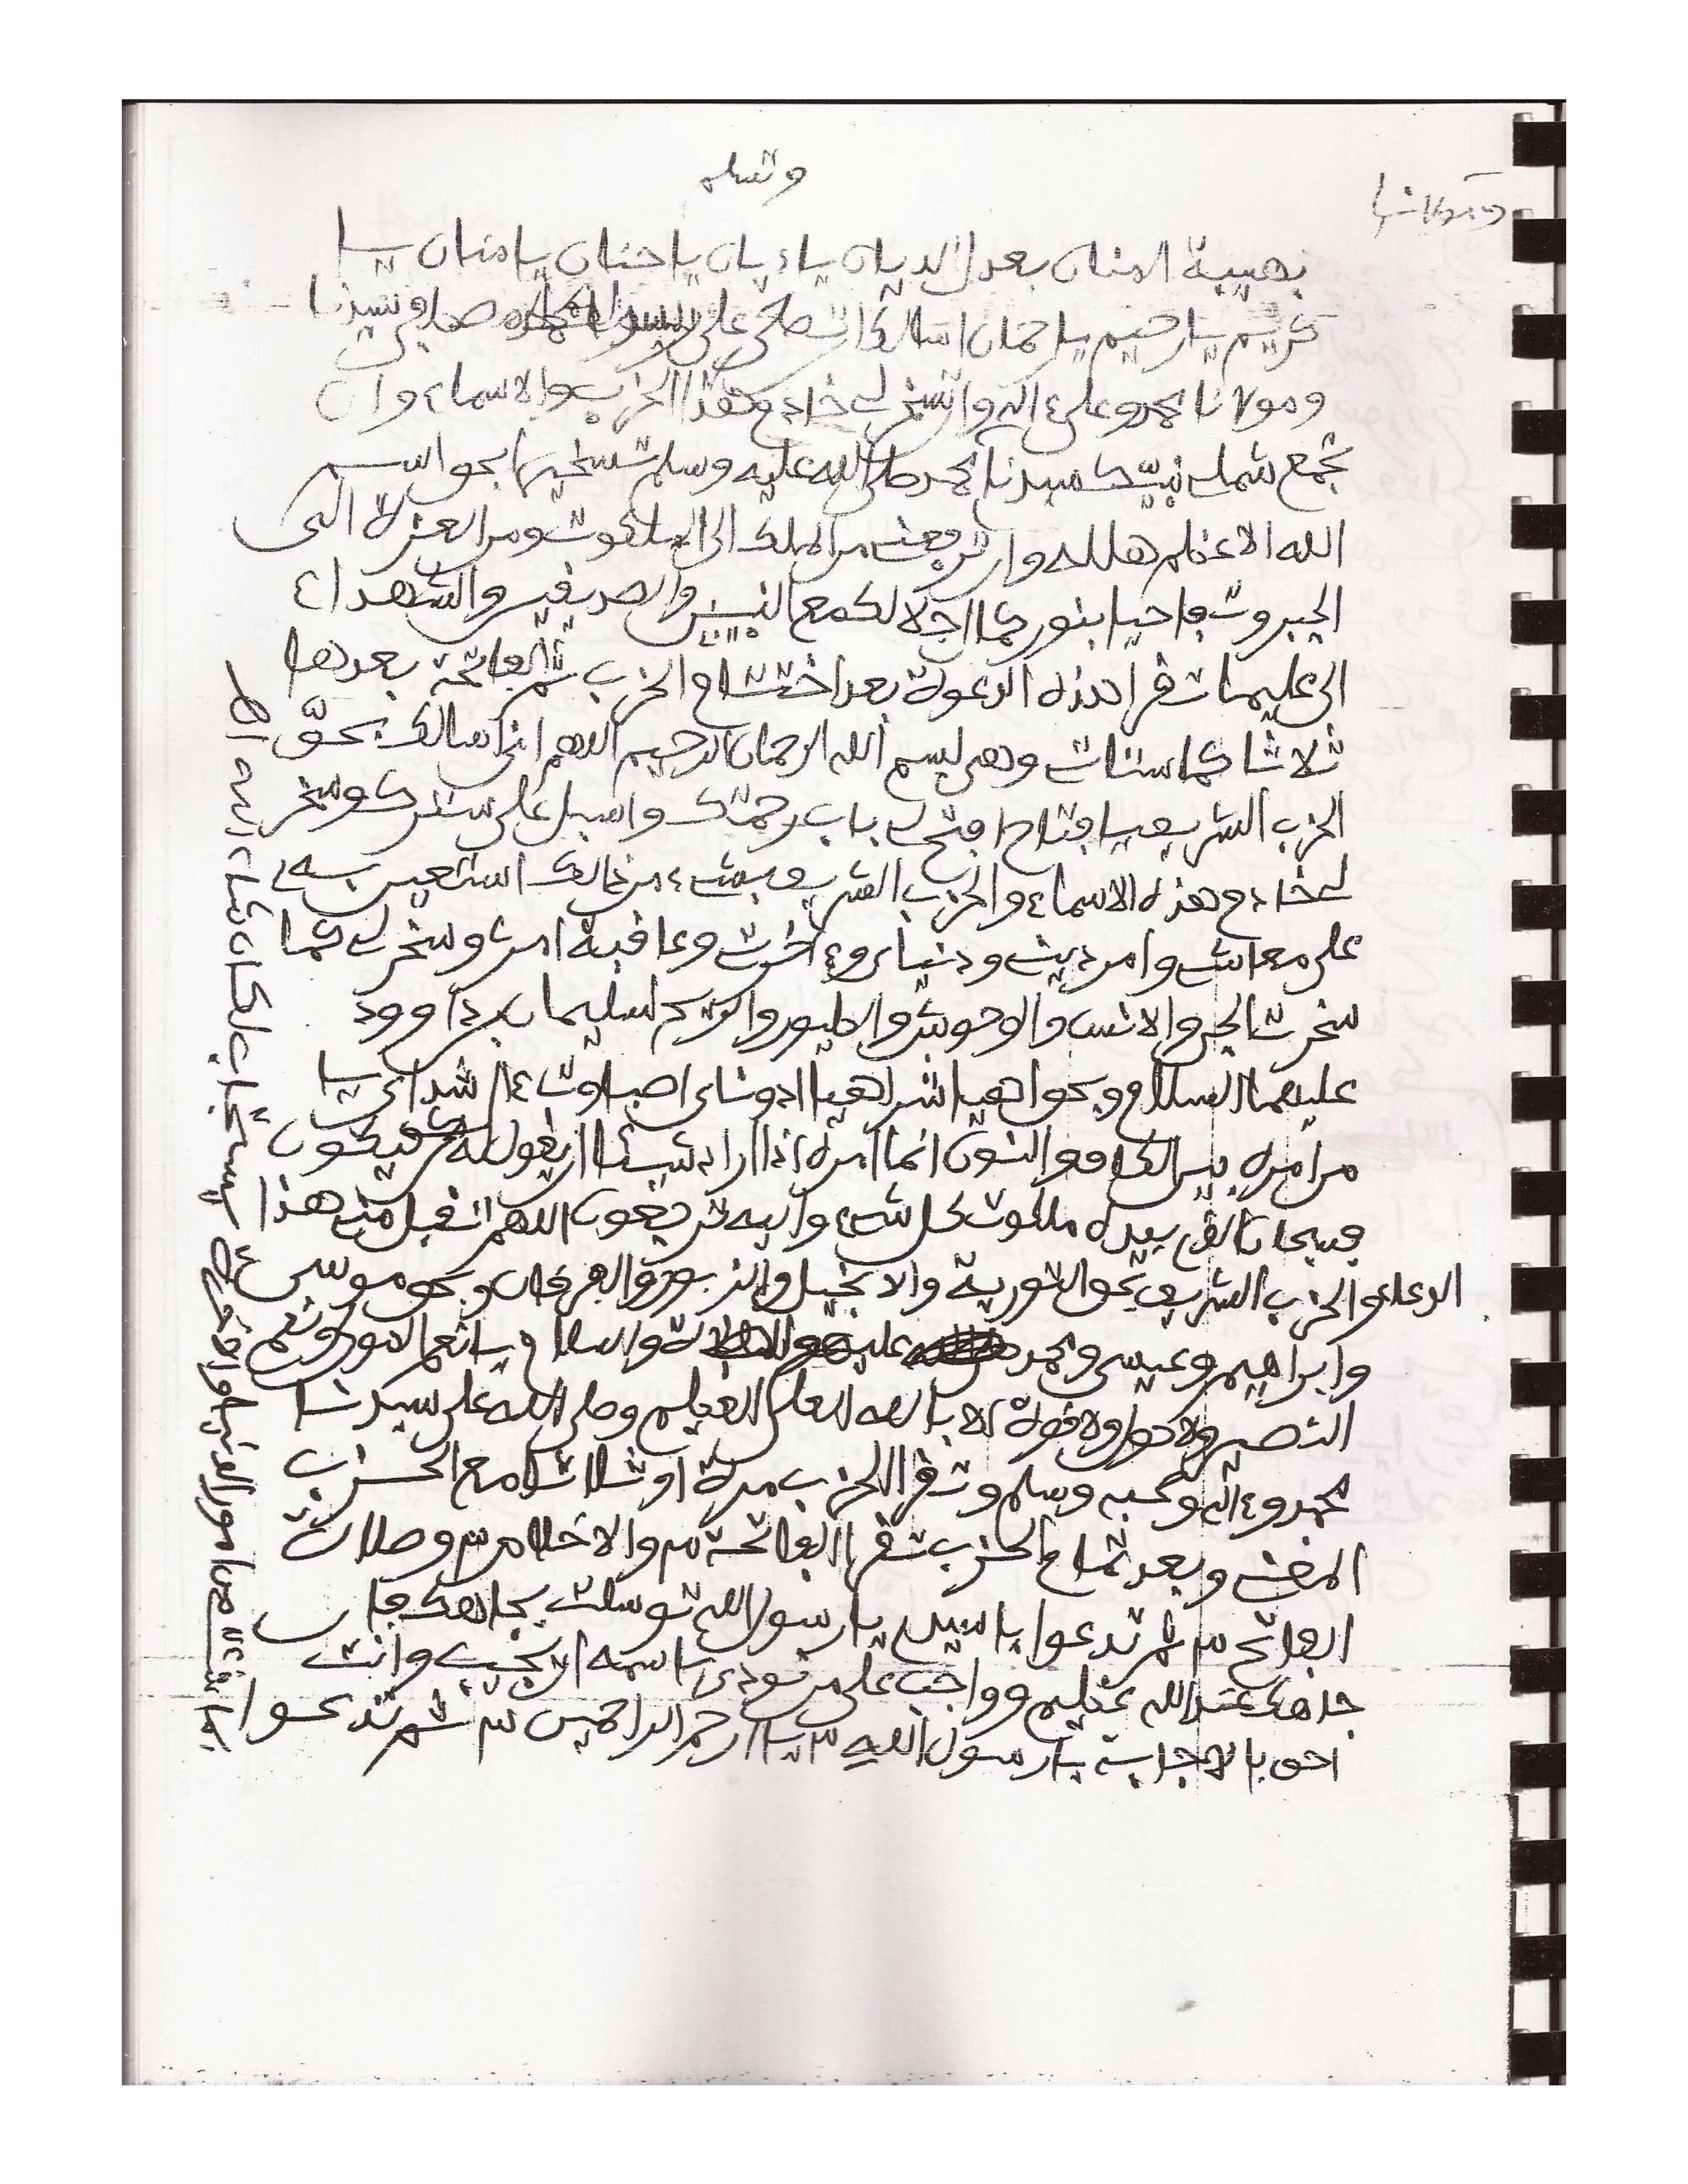 وتسلم
بهيبة المنان بعدل الديان يا ديان يا حنان يا منان يا
كريم يا رحيم يا رحمان اسالك ان تصلي على سيدنا
ومولانا محمد وعلى ءاله وان تسخر لي خادم هذا الحزب والاسماء وان
تجمع شملي بنبيك سيدنا محمد صلى الله عليه وسلم بحق اسم
الله الاعظم وان ترفعني من الملك الى الملكوت ومن العزة الى
الجبروت فاحيا بنور كمال جلالك مع النبيين والصديقين والشهداء
تقرا هذه الدعوة بعد اختتام الحزب ثم الفاتحة بعدها
ثلاثا وهي بسم الله الرحمان الرحيم اللهم اني اسالك بحقّ
الحزب الشريف يا فتاح افتح لي باب رحمتك واسبل على سترك وسخر
لي خادم هذه الاسماء والحزب الشريف بشيء من ذالك استعين به
على معاشي وامر ديني ودنياي وءاخرتي وعاقبة امري وسخر لي كما
سخرت الجن والانس والوحوش والطيور والريح لسليمان بن داوود
عليهما السلام وبحق اهيا شراهيا ادوناي اصباوت ءال شداي يا
من امره بين الكاف والنون انما امره اذا اراد شيئا ان يقول له كن فيكون
فسبحان الذي بيده ملكوت كل شيء واليه ترجعون اللهم اتقبل مني هذا
الدعاء والحزب الشريف بحق التورية والانجيل والزبور والفرقان وبحق موسى
وابراهيم وعيسى ومحمد عليهم الصلاة والسلام يا نعم المولى ونعم
النصير ولا حول ولا قوة الا بالله العلي العظيم وصلى الله على سيدنا
محمد وءاله وصحبه وسلم وتقرا الحزب مرة او ثلاثا مع الحزب
المغني وبعد تمام الحزب تقرا الفاتحة ٣ والاخلاص ٣ وصلاة
الفاتح ٣ ثم تدعوا يا سيدي يا رسول الله توسلت بجاهك فان
جاهك عند الله عظيم وواجب على من نودي باسمه ان يجيب وانت
احق بالاجابة يا رسول الله ٣ يا ارحم الراحمين ٣ ثم تدعوا